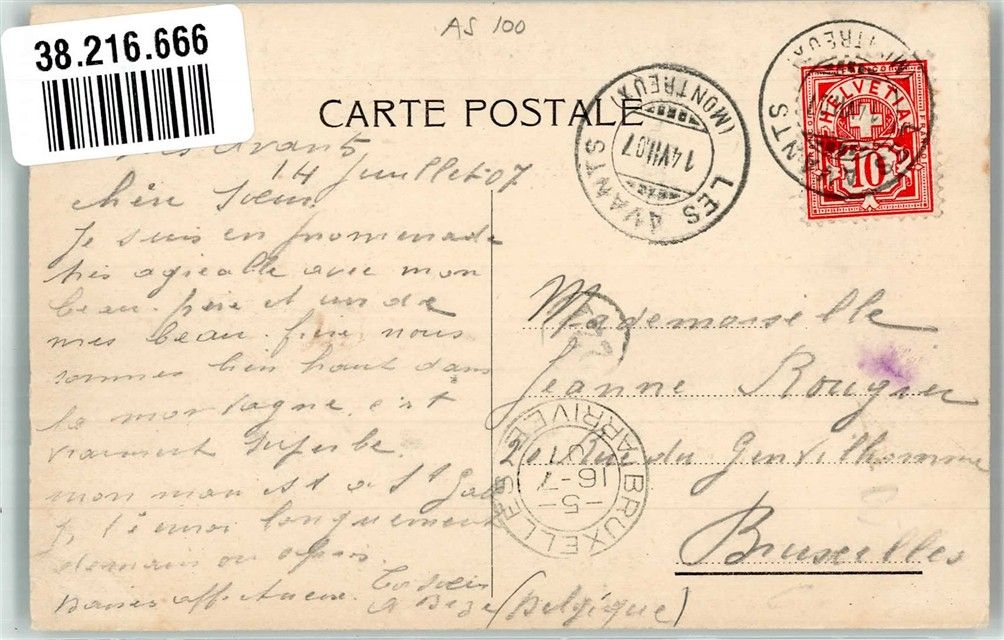 AS 100
38.216.666
CARTE POSTALE
LES AVANTS
(MONTREUX)
14.VII.07
HELVETIA
10
LES AVANTS
(MONTREUX)
Les Avants
14 Juillet 07
Chère Sœur
Je suis en promenade
très agréable avec mon
beau père et un de
mes beau frère nous
sommes bien haut dans
la montagne c'est
vraiment superbe.
mon mari est a St Gall
je t'écrirai longuement
demain ou après
Baisers affectueux. Ta sœur
Mademoiselle
Jeanne Rougier
Rue du Gentilhomme
Bruxelles
(Belgique)
BRUXELLES
ARRIVEE
-5-
16-7
07